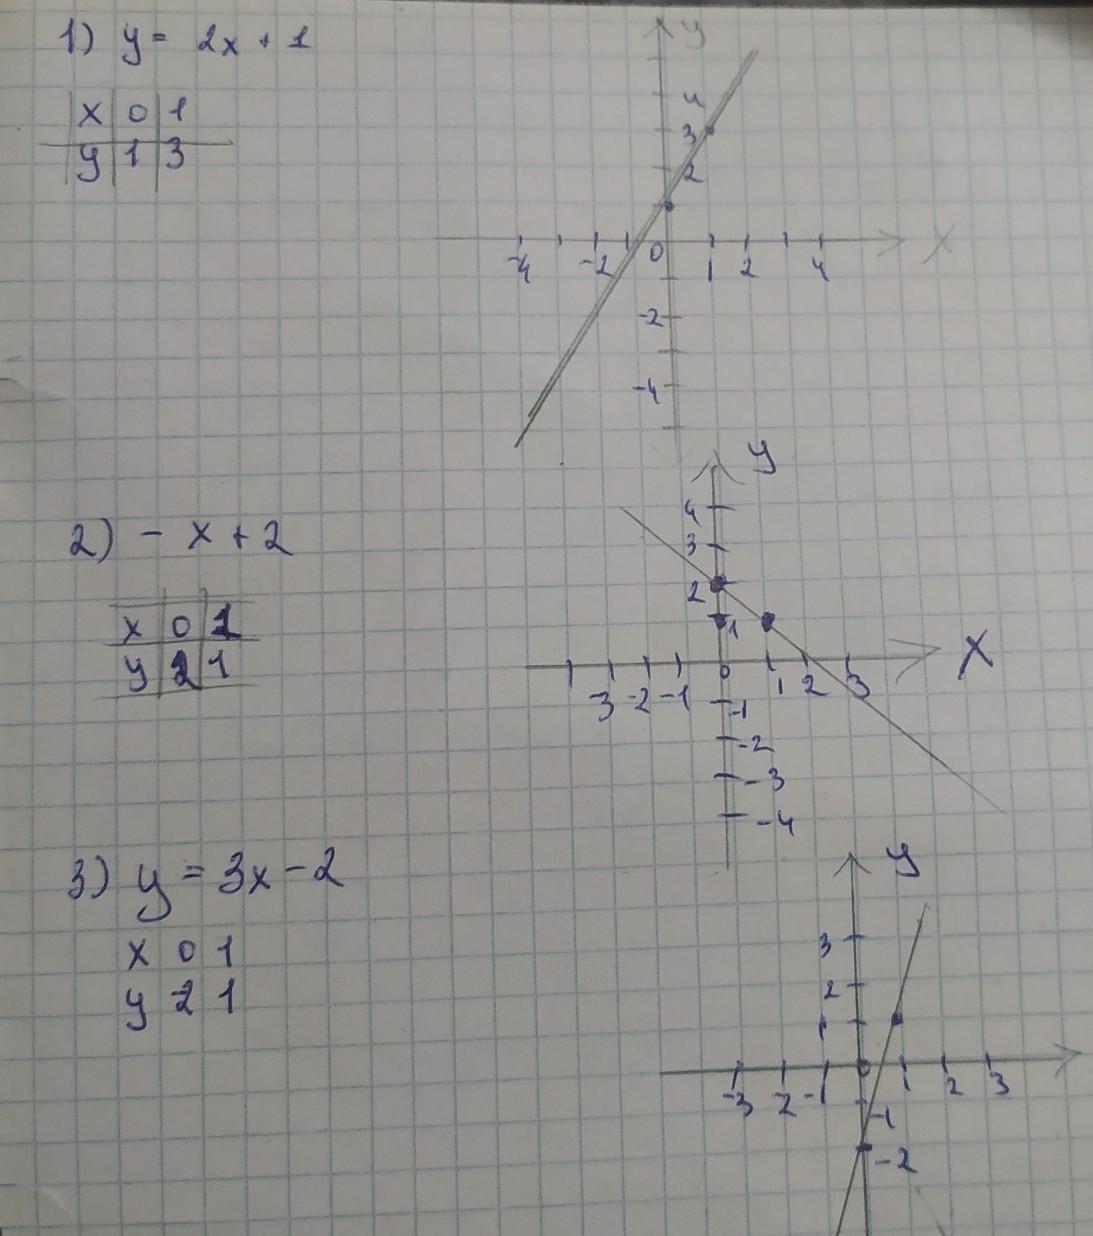 1) y = 2x + 1
x 0 1
y 1 3
y
4
3
2
-4 -2 0 1 2 4 x
-2
-4
2) - x + 2
x 0 1
y 2 1
y
4
3
2
1
-3 -2 -1 0 1 2 3 x
-1
-2
-3
-4
3) y = 3x - 2
x 0 1
y 2 1
y
3
2
1
-3 2 -1 0 1 2 3
-1
-2